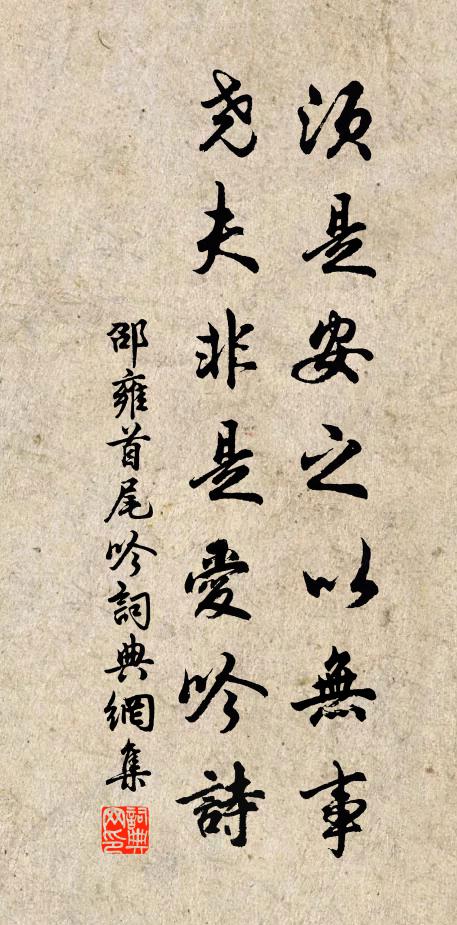 須是安之以無事
堯夫非是愛吟詩
邵雍首尾吟詞典網集
詞典
网印